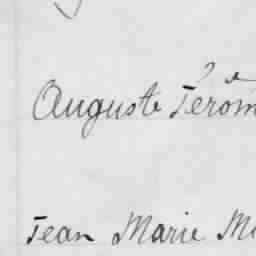 Auguste Jerom
Jean Marie M